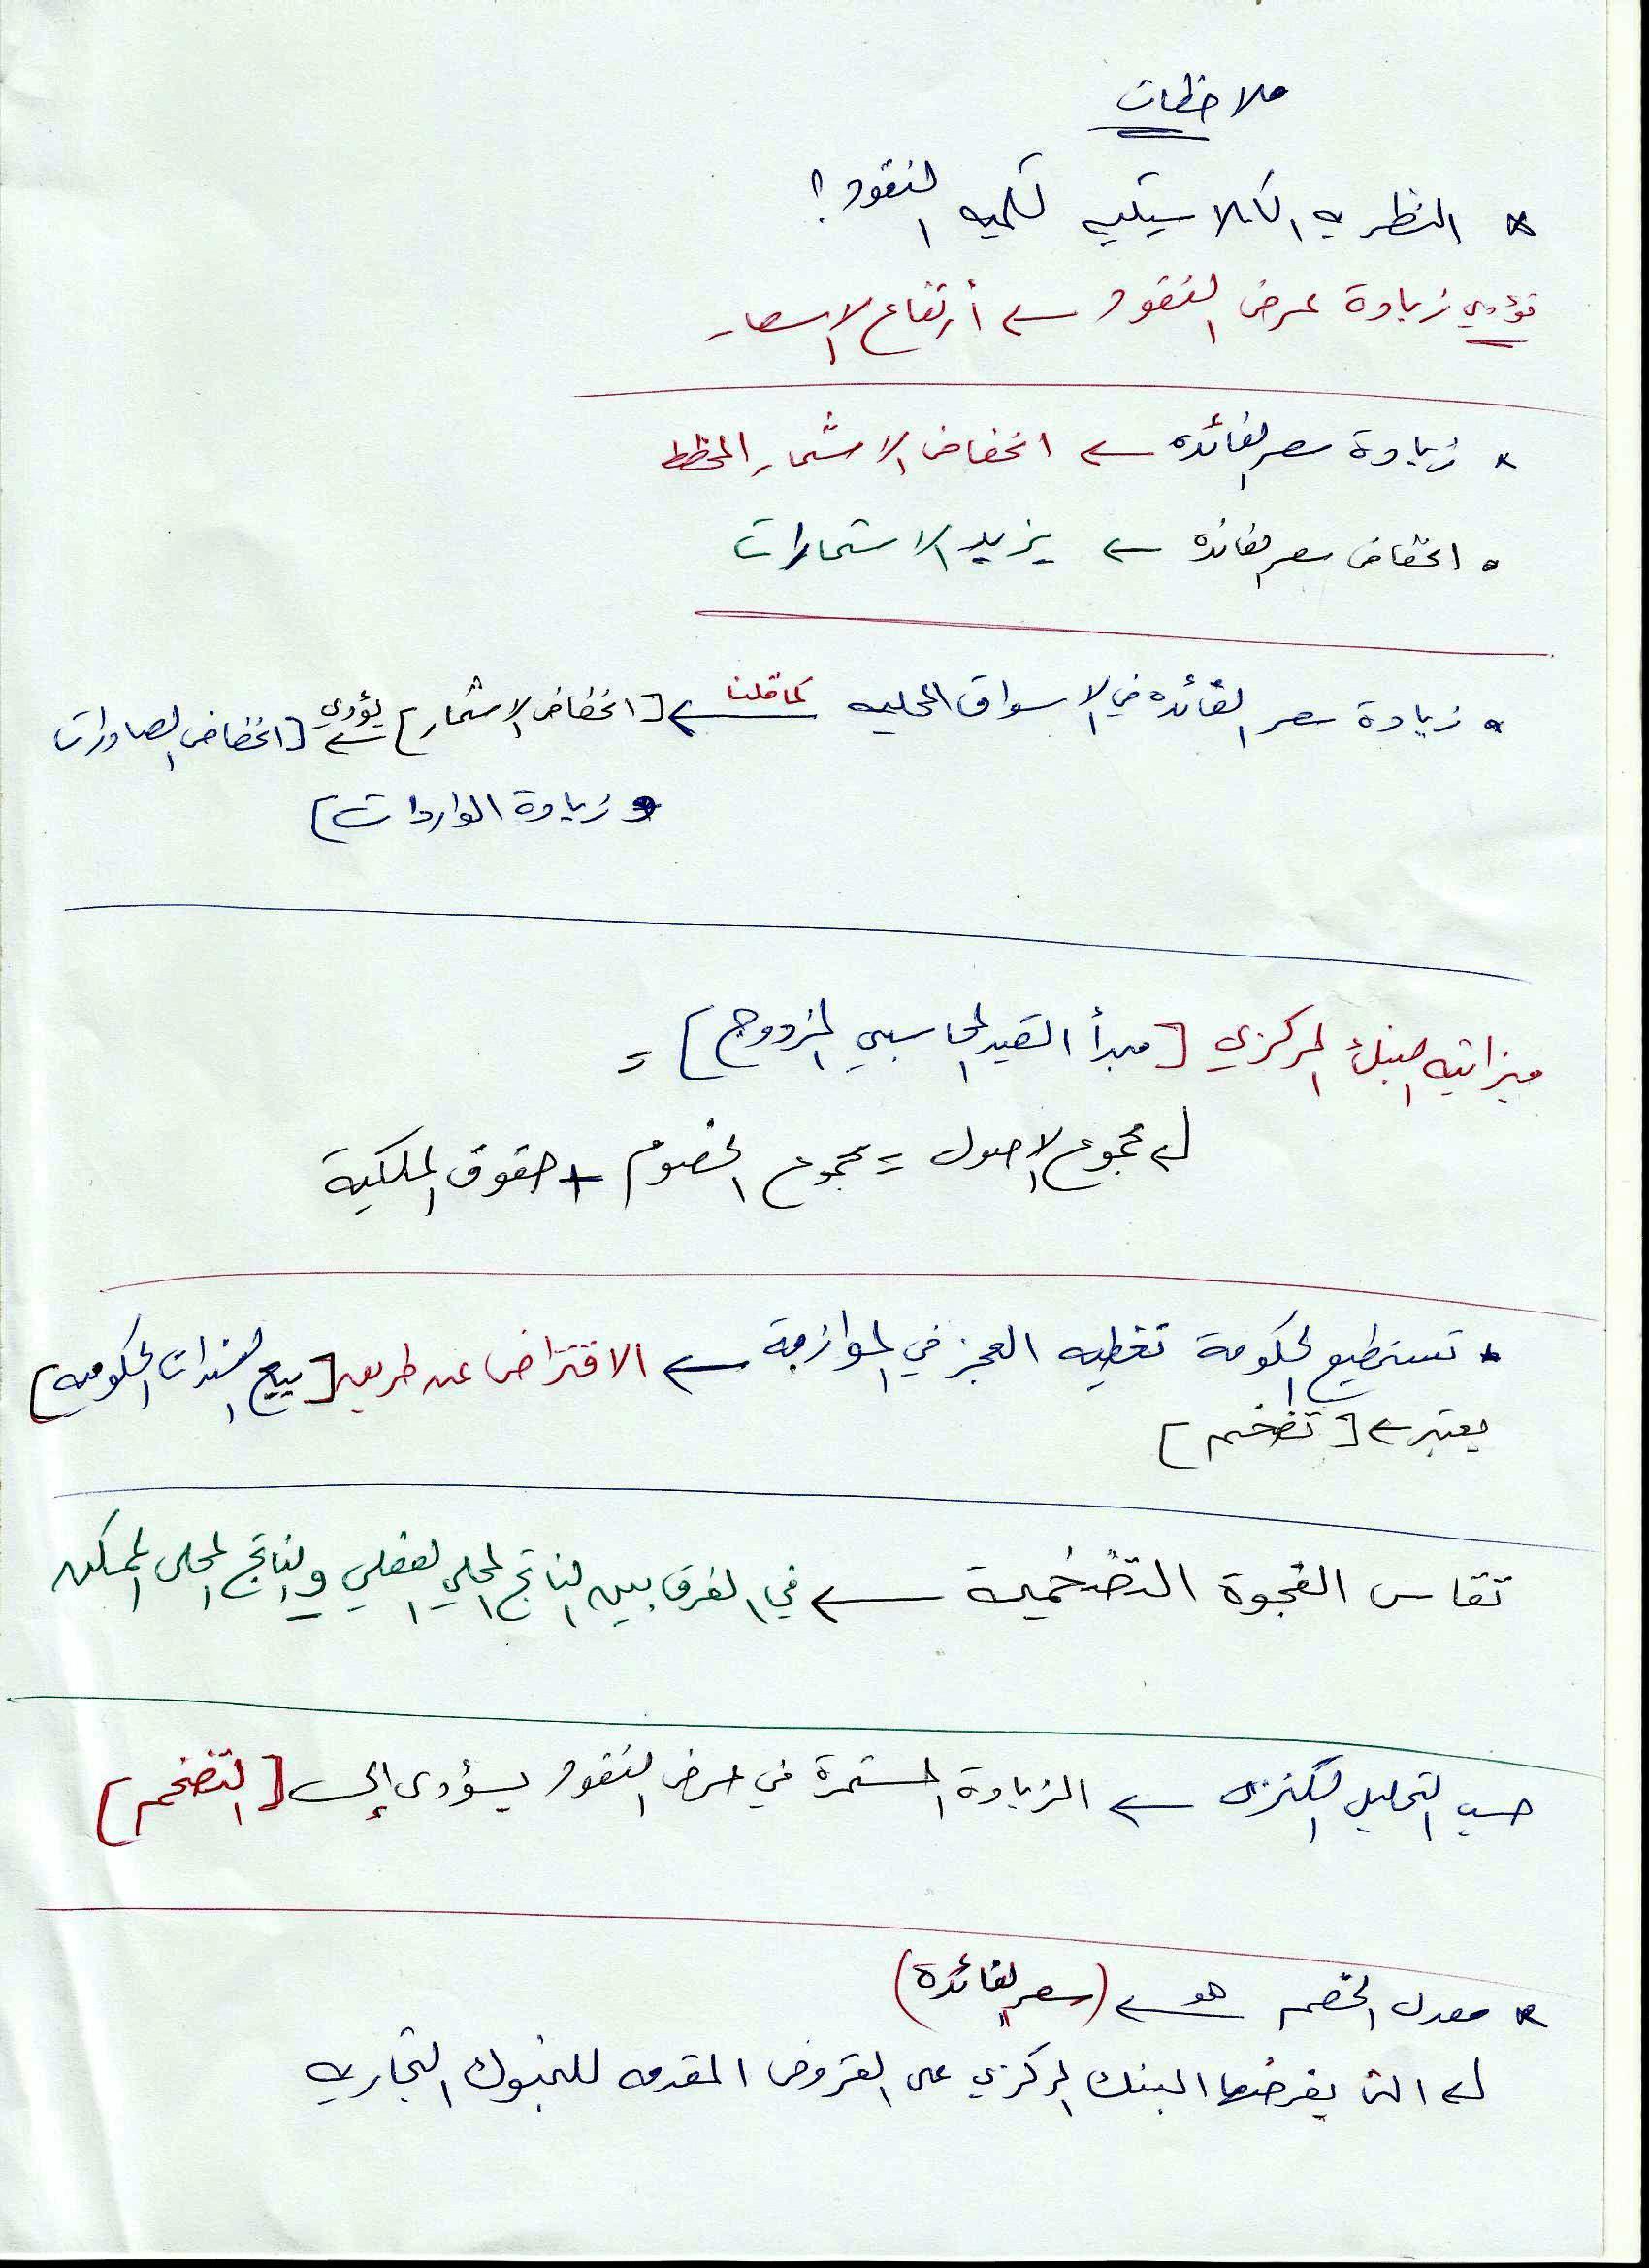 ملاحظات
* النظريه الكلاسيكيه لكميه النقود !
تؤدي زيادة عرض النقود ← أرتفاع الاسعار
* زيادة سعر الفائده ← انخفاض الاستثمار المخطط
• انخفاض سعر الفائده ← يزيد الاستثمارات
• زيادة سعر الفائده في الاسواق المحليه كما قلنا ← [انخفاض الاستثمار] يؤدي ← [انخفاض الصادرات
و زيادة الواردات]
ميزانيه البنك المركزي [مبدأ القيد المحاسبي المزدوج] =
مجموع الاصول = مجموع الخصوم + حقوق الملكية
• تستطيع الحكومة تغطيه العجز في الموازنة ← الاقتراض عن طريق [بيع السندات الحكوميه]
يعتبر ← [تضخم]
تقاس الفجوة التضخمية ← في الفرق بين الناتج المحلي الفعلي والناتج المحلى الممكن
حسب التحليل الكنزي ← الزيادة المستمرة في عرض النقود يؤدى إلى [التضخم]
* معدل الخصم هو ← (سعر الفائدة)
التى يفرضها البنك المركزي على القروض المقدمه للبنوك التجاريه